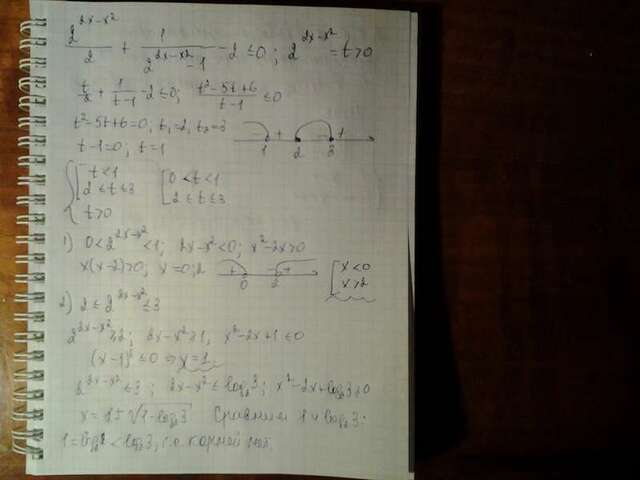 2^(2x-x²)/2 + 1/(2^(2x-x²)-1) - 2 ≤ 0; 2^(2x-x²) = t > 0
t/2 + 1/(t-1) - 2 ≤ 0; (t²-5t+6)/(t-1) ≤ 0
t²-5t+6=0, t₁=2, t₂=3
t-1=0; t=1
- + - +
1 2 3
{ [ t<1
2 ≤ t ≤ 3
t>0
[ 0<t<1
2 ≤ t ≤ 3
1) 0<2^(2x-x²)<1; 2x-x²<0; x²-2x>0
x(x-2)>0; x=0;2
+ - +
0 2
[ x<0
x>2
2) 2 ≤ 2^(2x-x²) ≤ 3
2^(2x-x²) ≥ 2; 2x-x² ≥ 1, x²-2x+1 ≤ 0
(x-1)² ≤ 0 ⇒ x=1
2^(2x-x²) ≤ 3; 2x-x² ≤ log₂3; x²-2x+log₂3 ≥ 0
x = 1±√(1-log₂3) Сравним 1 и log₂3:
1 = log₂2 < log₂3, т.е. корней нет.